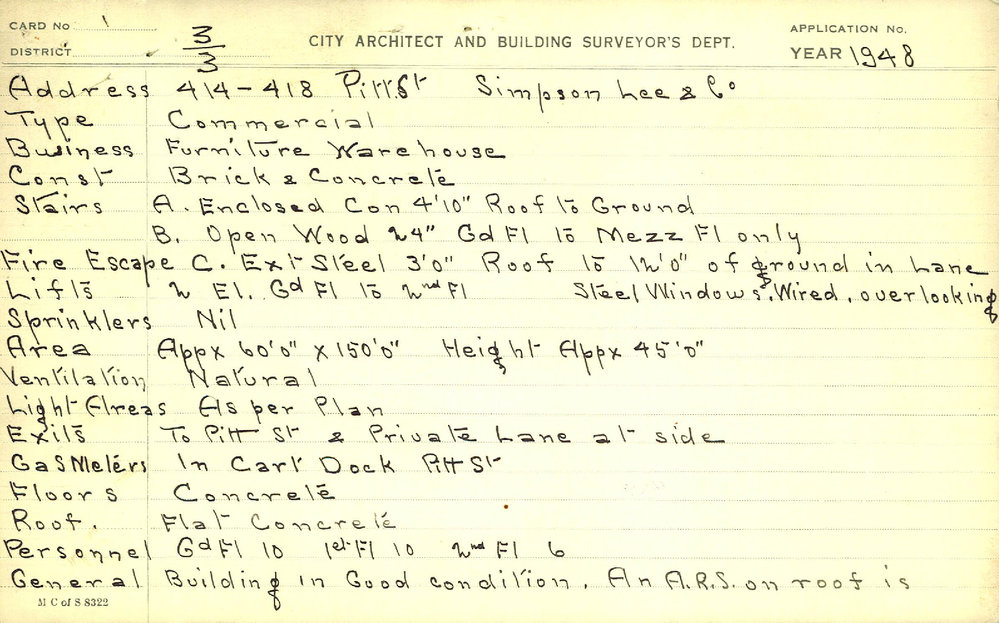 CARD No 1
DISTRICT 3/3
CITY ARCHITECT AND BUILDING SURVEYOR'S DEPT.
APPLICATION No.
YEAR 1948
Address 414-418 Pitt St Simpson Lee & Co
Type Commercial
Business Furniture Warehouse
Const Brick & Concrete
Stairs A. Enclosed Con 4'10" Roof to Ground
B. Open Wood 24" Gd Fl to Mezz Fl only
Fire Escape C. Ext Steel 3'0" Roof to 12'0" of ground in Lane
Lifts 2 El. Gd Fl to 2nd Fl Steel Windows. Wired. overlooking
Sprinklers Nil
Area Appx 60'0" x 150'0" Height Appx 45'0"
Ventilation Natural
Light Areas As per Plan
Exits To Pitt St & Private Lane at side
Gas Meters In Cart Dock Pitt St
Floors Concrete
Roof. Flat Concrete
Personnel Gd Fl 10 1st Fl 10 2nd Fl 6
General Building in Good condition. An A.R.S. on roof is
M C of S 8322